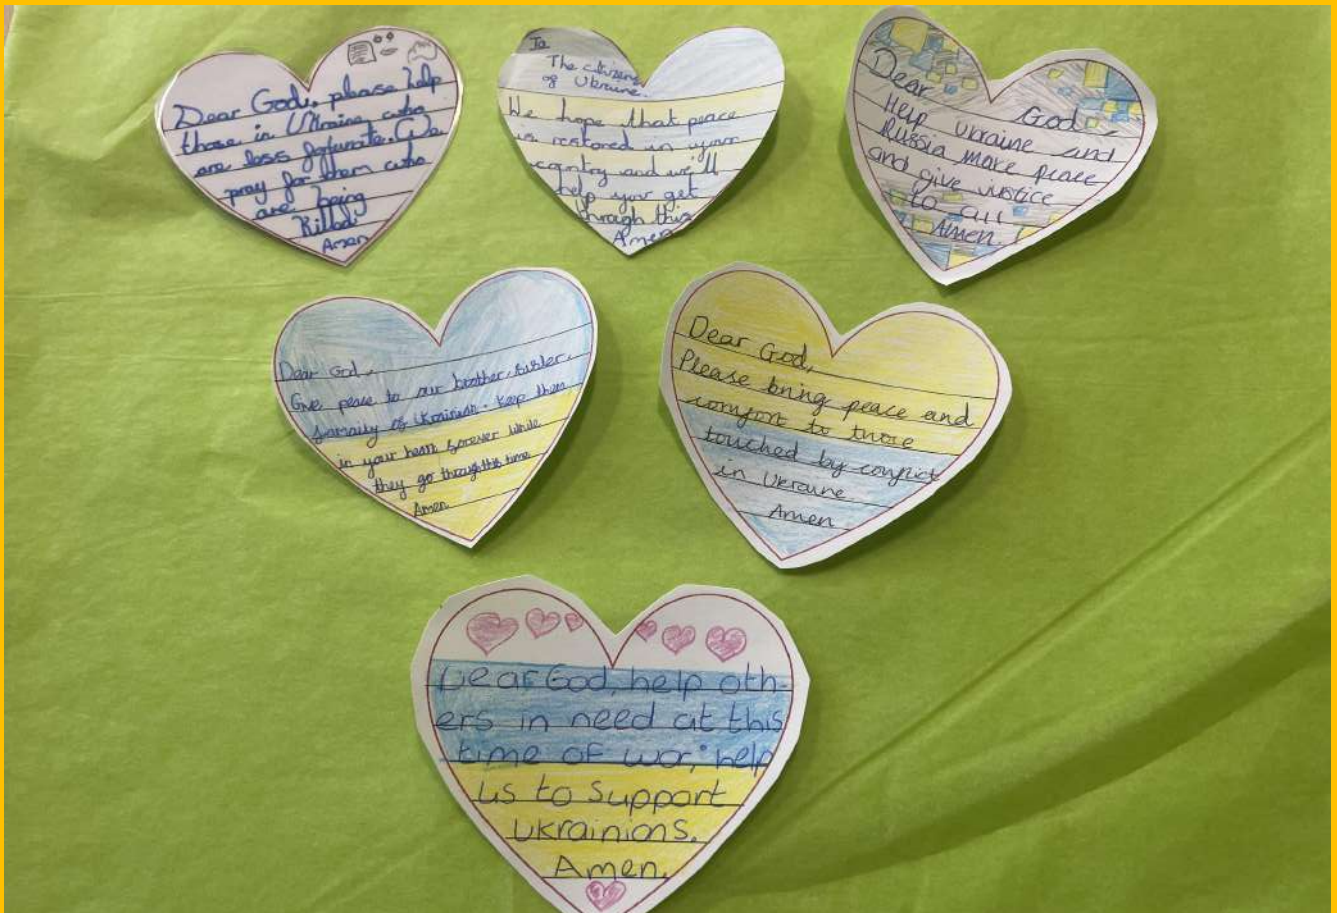 Dear God, please help
those in Ukraine who
are less fortunate. We
pray for them who
are being
Killed
Amen
To
The citizens
of Ukraine.
We hope that peace
is restored in your
country and we'll
help you get
through this
Amen
Dear God,
Help Ukraine and
Russia make peace
and give justice
to all
Amen.
Dear God,
Give peace to our brother, sister,
famaily of Ukrainian. Keep them
in your heart forever while
they go through this time
Amen.
Dear God,
Please bring peace and
comfort to those
touched by conflict
in Ukraine
Amen
Dear God, help oth-
ers in need at this
time of war, help
us to support
Ukrainions.
Amen.